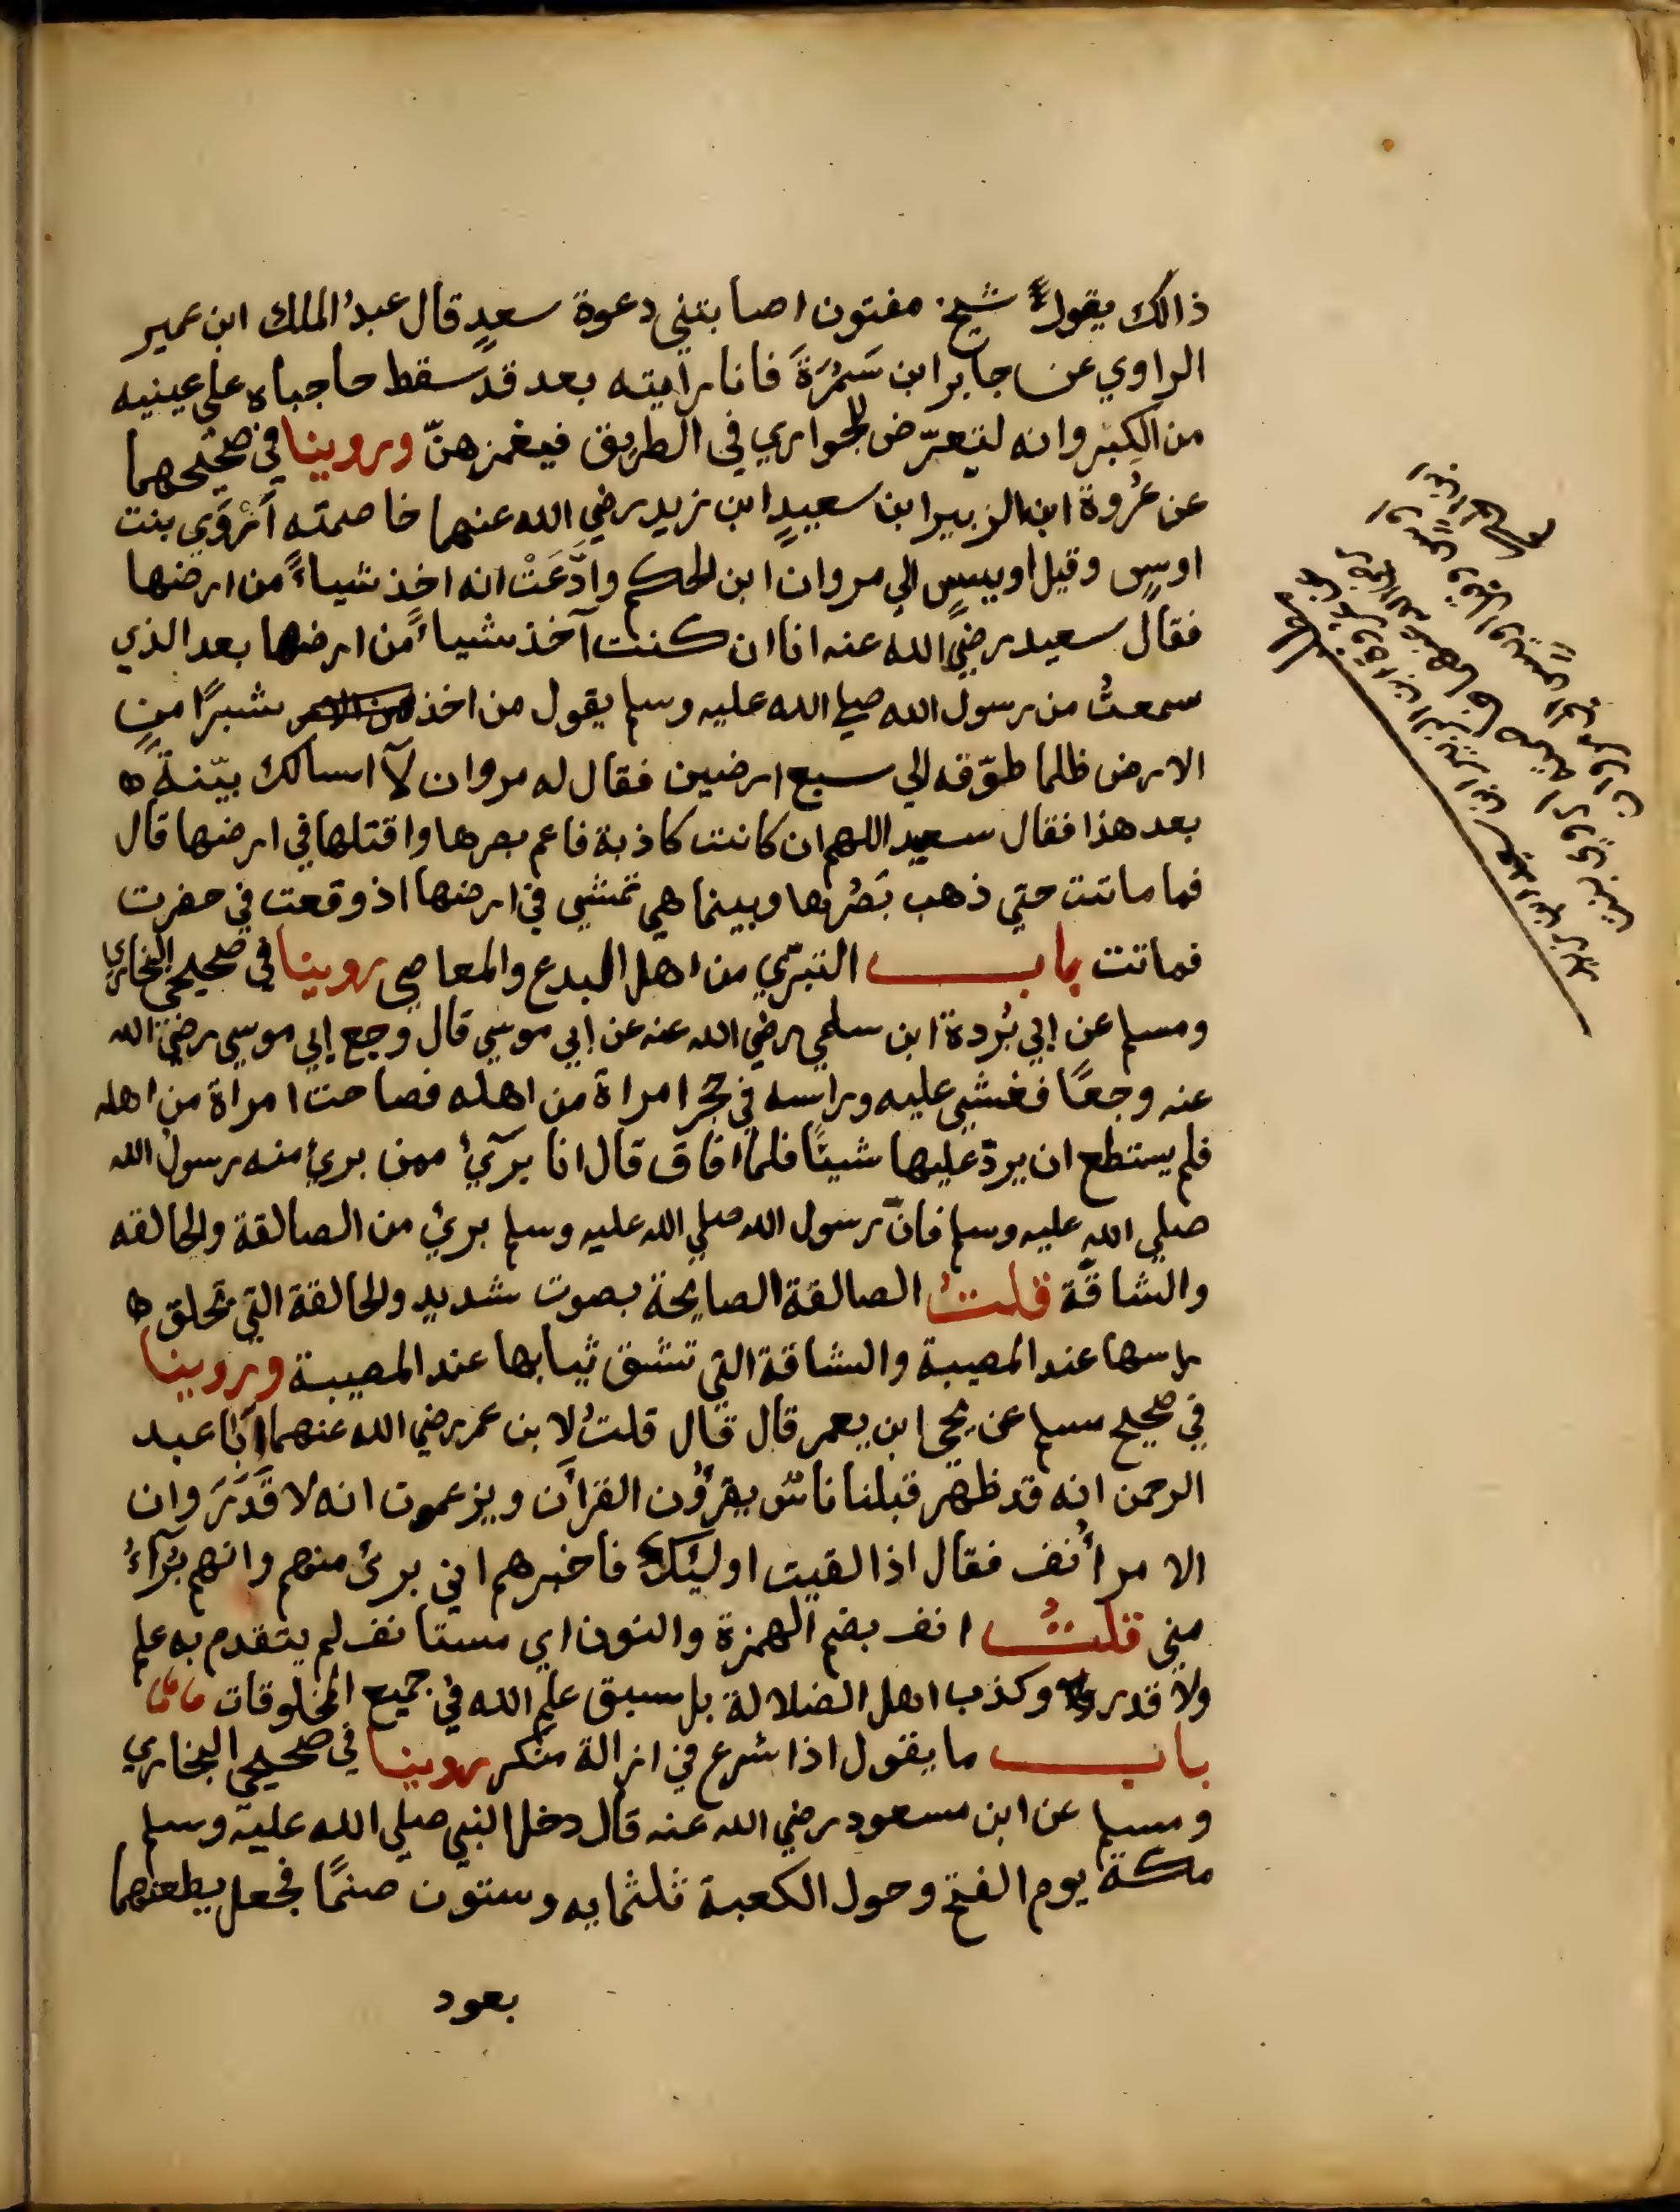 ذالك يقول شيخ مفتون اصابتني دعوة سعدٍ قال عبدُ الملك ابن عمير
الراوي عن جابر ابن سَمُرَةَ فانا رايته بعد قد سقط حاجباه على عينيه
من الكِبَر وانه لتيعرّض للجواري في الطريق فيغمزهنّ وروينا في صحيحهما
عن عُروة ابن الزبير ابن سعيدٍ ابن زيد رضي الله عنهما خاصمته أرْوَي بنت
اوسٍ وقيل اويسٍ الي مروان ابن الحكم وادَّعَتْ انه اخذ شياءً من ارضها
فقال سعيد رضي الله عنه انا ان كنت آخذ شياءً من ارضها بعد الذي
سمعتُ من رسول الله صلي الله عليه وسلم يقول من اخذ شبرًا من
الارض ظلما طوّقه الي سبع ارضين فقال له مروان لآ اسالك بيّنةً
بعد هذا فقال سعيد اللهم ان كانت كاذبة فاعم بصرها واقتلها في ارضها قال
فما ماتت حتي ذهب بَصُرها وبينما هي تمشي في ارضها اذ وقعت في حفرت
فماتت باب التبرّي من اهل البدع والمعاصي روينا في صحيحي البخاري
ومسلم عن إبي بُردة ابن سلمي رضي الله عنه عن إبي موسي قال وجع إبي موسي رضي الله
عنه وجعًا فغشي عليه وراسه في حجر امراة من اهله فصاحت امراة من اهله
فلم يستطع ان يردّ عليها شيئًا فلما افاق قال انا برآيٌ ممن برئ منه رسول الله
صلي الله عليه وسلم فانّ رسول الله صلي الله عليه وسلم برئ من الصالقة والحالقه
والشاقّة قلتُ الصالقة الصايحة بصوت شديد والحالقة التي تحلق
راسها عند المصيبة والشاقة التي تشق ثيابها عند المصيبة وروينا
في صحيح مسلم عن يحي ابن يعمر قال قال قلتُ لابن عمر رضي الله عنهما ابا عبد
الرحمن انه قد ظهر قبلنا ناسٌ يقرؤن القرأن ويزعمون انه لا قَدَرَ وان
الامر أُنف فقال اذا لقيت اوليك فاخبرهم اني برئ منهم وانهم بُرآءُ
مني قلتُ انف بضم الهمزة والنون اي مستانف لم يتقدم به علم
ولا قدر وكذب اهل الضلالة بل سبق علم الله في جميع المخلوقات
باب ما يقول اذا شرع في ازالة منكر روينا في صحيحي البخاري
ومسلم عن ابن مسعود رضي الله عنه قال دخل النبي صلي الله عليه وسلم
مكة يوم الفتح وحول الكعبة ثلثمايه وستون صنمًا فجعل يطعنهما
بعود